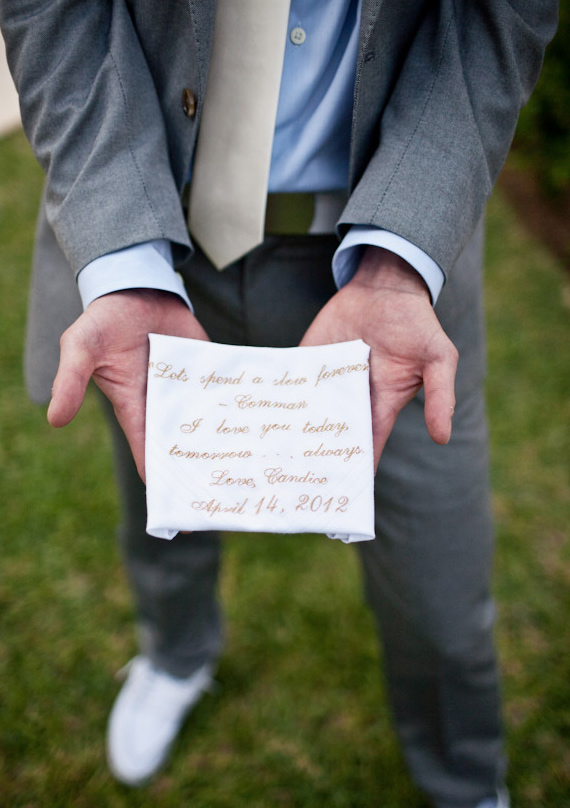 "Lets spend a slow forever"
- Comman
I love you today,
tomorrow . . . always.
Love, Candice
April 14, 2012